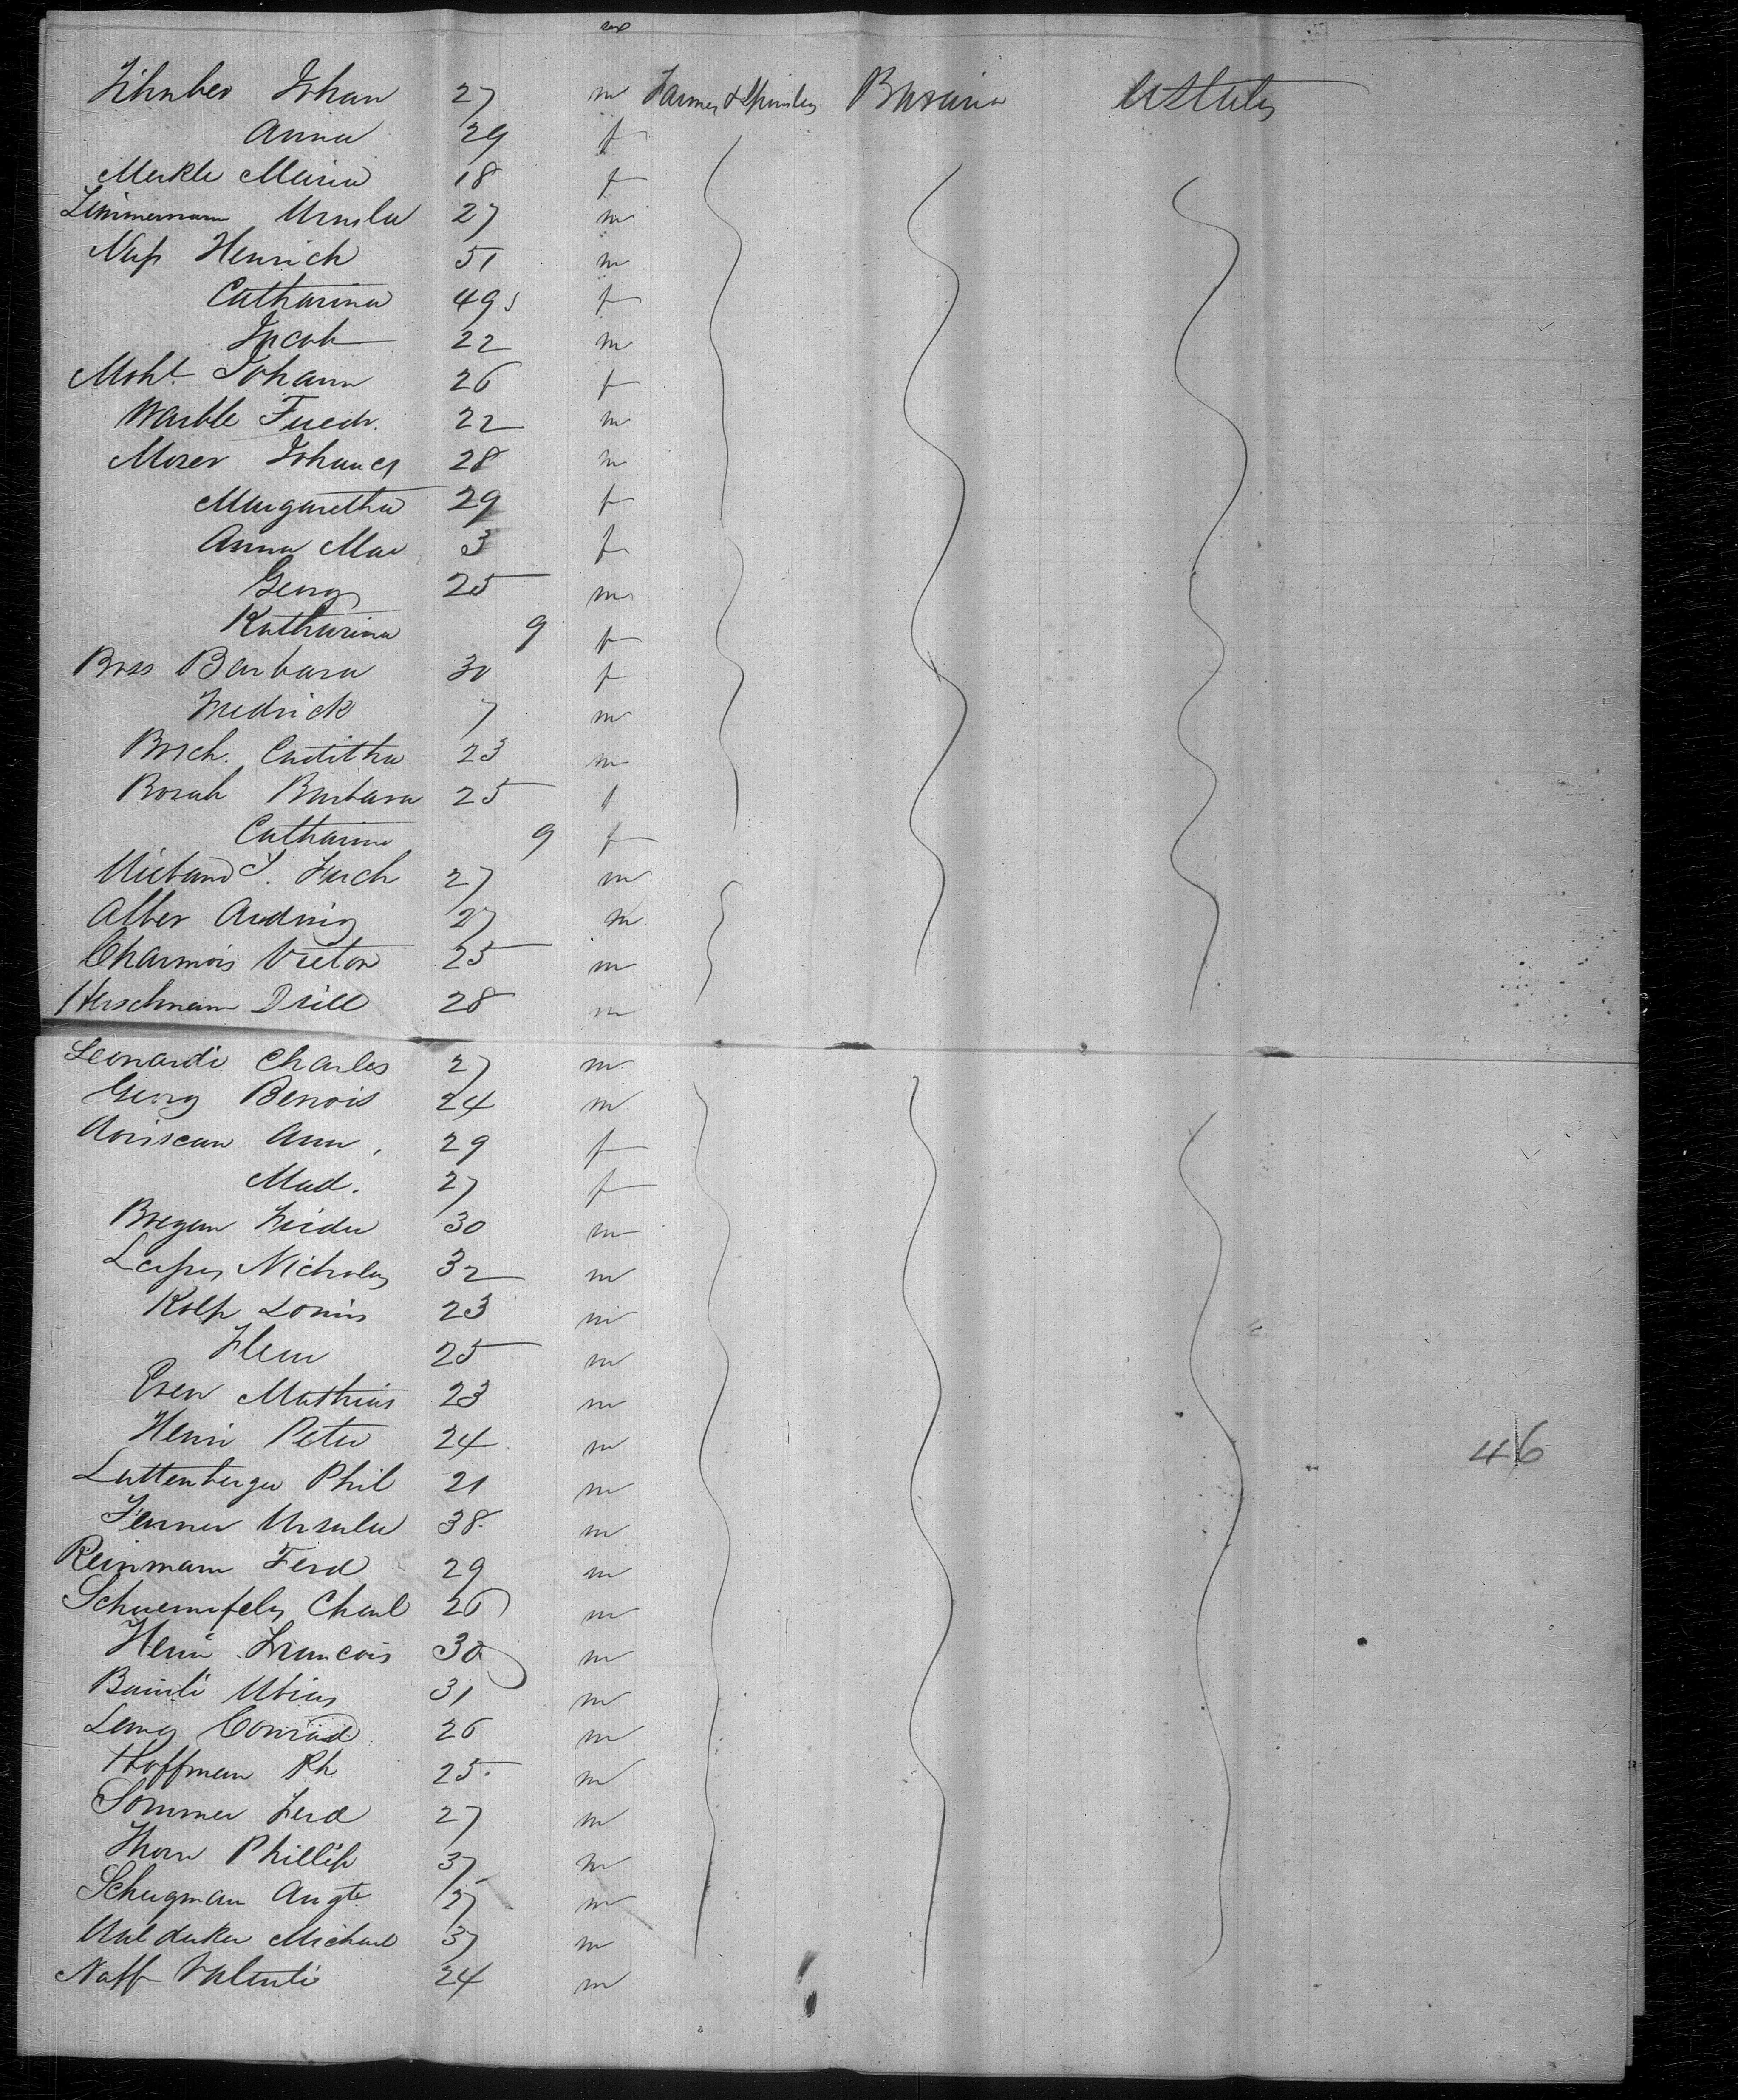 Johan 27 m Farmers & Spinsters Bavaria U States
Anna 29 f
Merkle Maria 18 f
Zimmermann Ursula 27 m
Henrich 51 m
Catharina 49 f
Jacob 22 m
Moht. Johann 26 f
Warble Friedr. 22 m
Moser Johanes 28 m
Margaretha 29 f
Anna Mar 3 f
Georg 25 m
Katharina 9 f
Boss Barbara 30 f
Fredrick 7 m
Bosch. 23 m
Barbara 25 f
Catharina 9 f
27 m
Alber 27 m
Charmois Victor 25 m
Herschmann Drill 28 m
Leonardi Charles 27 m
Georg Benois 24 m
Ann 29 f
Mad. 27 f
30 m
Nicholas 32 m
Kolp Louis 23 m
25 m
Even Mathias 23 m
Henri Peter 24 m
46
Luttenberger Phil 21 m
Ursula 38 m
Reinmann Ferd 29 m
Charl 26 m
Henri Francois 30 m
31 m
Lang Conrad 26 m
Hoffman Ph 25 m
Sommer Ferd 27 m
Horn Phillip 37 m
Schugman Augt. 27 m
Michael 37 m
Naff Valenti 24 m